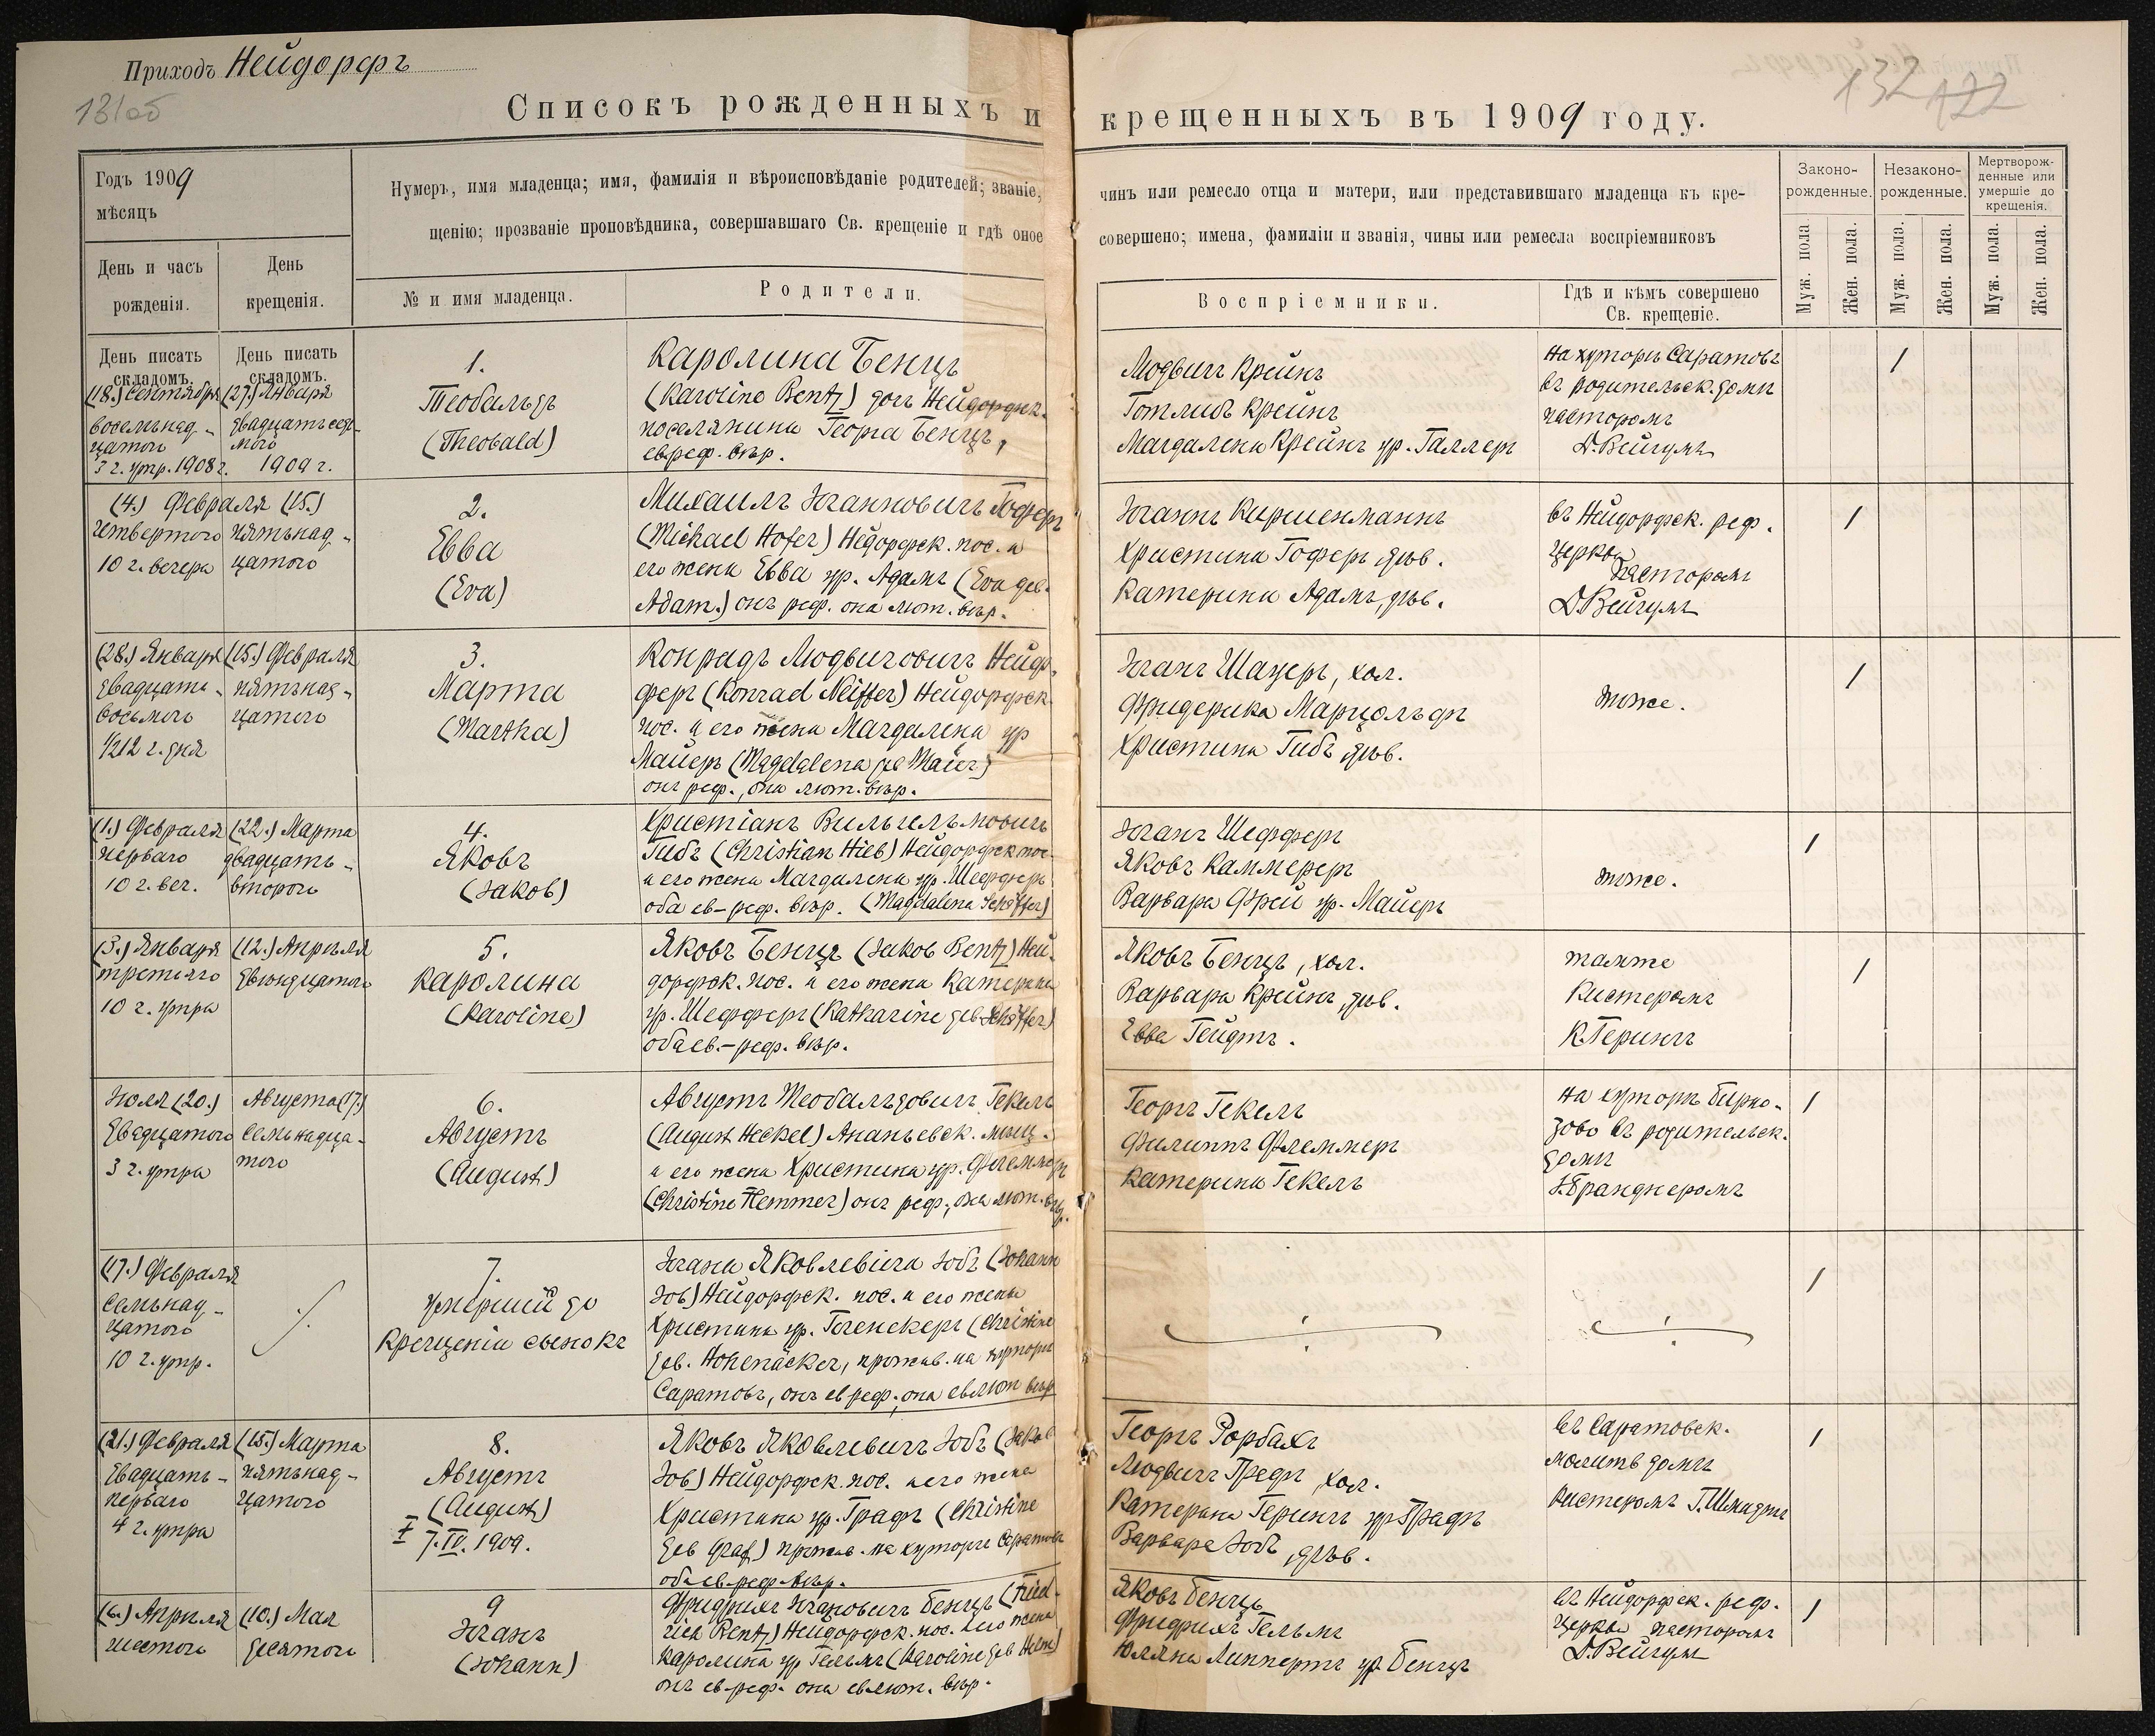 Приходъ Нейдорфъ
131об
132 122
Списокъ рожденныхъ и крещенныхъ въ 1909 году.
Годъ 1909
мѣсяцъ
День и часъ
рожденія.
День
крещенія.
Нумеръ, имя младенца; имя, фамилія и вѣроисповѣданіе родителей; званіе, чинъ или ремесло отца и матери, или представившаго младенца къ кре-
щенію; прозваніе проповѣдника, совершавшаго Св. крещеніе и гдѣ оное совершено; имена, фамиліи и званія, чины или ремесла воспріемниковъ
№ и имя младенца.
Родители.
Воспріемники.
Гдѣ и кѣмъ совершено
Св. крещеніе.
Законо-
рожденные.
Незаконо-
рожденные.
Мертворож-
денные или
умершіе до
крещенія.
Муж. пола.
Жен. пола.
Муж. пола.
Жен. пола.
Муж. пола.
Жен. пола.
День писать
складомъ.
День писать
складомъ.
(18.) Сентября
восемьнад-
цатого
3 г. утр. 1908 г.
(27.) Января
двадцать седь-
мого
1909 г.
1.
Теобальдъ
(Theobald)
Каролина Бенцъ
(Karoline Bentz) дочь Нейдорфск.
поселянина Георга Бенцъ,
ев. реф. вѣр.
Людвигъ Крейнъ
Готлибъ Крейнъ
Магдалена Крейнъ ур. Галлеръ
на хуторѣ Саратовъ
въ родительск. домѣ
пасторомъ
Д. Вейгумъ
1
(4.) Февраля (15.)
четвертого
10 г. вечера
пятьнад-
цатого
2.
Евва
(Eva)
Михаилъ Іоганновичъ Гоферъ
(Michael Hofer) Нейдорфск. пос. и
его жена Евва ур. Адамъ (Eva geb.
Adam.) онъ реф. она лют. вѣр.
Іоганнъ Киршенманнъ
Христина Гоферъ, дѣв.
Катерина Адамъ, дѣв.
въ Нейдорфск. реф.
церкви
пасторомъ
Д. Вейгумъ
1
(28.) Января
двадцать-
восьмого
½12 г. дня
(15.) Февраля
пятьнад-
цатого
3.
Марта
(Martha)
Конрадъ Людвиговичъ Нейф-
феръ (Konrad Neiffer) Нейдорфск.
пос. и его жена Магдалена ур
Майеръ (Magdalena geb Maier)
онъ реф., она лют. вѣр.
Іоганъ Шацеръ, хол.
Фридерика Марцольфъ
Христина Гибъ дѣв.
тоже.
1
(1.) Февраля
перваго
10 г. веч.
(22.) Марта
двадцать-
второго
4.
Яковъ
(Jakob)
Христіанъ Вильгельмовичъ
Гибъ (Christian Hieb) Нейдорфск пос.
и его жена Магдалена ур. Шефферъ
оба ев-реф. вѣр. (Magdalena Schäffer)
Іоганъ Шефферъ
Яковъ Каммереръ
Варвара Фрей ур. Майеръ
тоже.
1
(3.) Января
третьяго
10 г. утра
(12.) Апрѣля
двѣнадцатого
5.
Каролина
(Karoline)
Яковъ Бенцъ (Jakob Bentz) Ней-
дорфск. пос. и его жена Катерина
ур. Шефферъ (Katharine geb Schäffer)
оба ев.-реф. вѣр.
Яковъ Бенцъ, хол.
Варвара Крейнъ, дѣв.
Евва Гейдтъ.
тамже
Кистеромъ
К. Герингъ
1
Іюля (20.)
двадцатого
3 г. утра
Августа (17.)
семьнадца-
того
6.
Августъ
(August)
Августъ Теобальдовичъ Гекель
(August Heckel) Ананьевск. мѣщ.
и его жена Христина ур. Флеммеръ
(Christine Flemmer) онъ реф., она лют. вѣр.
Георгъ Гекель
Филиппъ Флеммеръ
Катерина Гекель
на хуторѣ Бирю-
зово въ родительск.
домѣ
1
(17.) Февраля
семьнад-
цатого
10 г. утр.
7.
умершій до
крещенія сынокъ
Іогана Яковлевича Зобъ (Johann
Sob) Нейдорфск. пос. и его жены
Христины ур. Гогенекеръ (Christine
geb. Hohenäcker, прожив. на хуторѣ
Саратовъ, онъ ев реф., она ев лют вѣр
1
(21.) Февраля
двадцать-
перваго
4 г. утра
(15.) Марта
пятьнад-
цатого
8.
Августъ
(August)
7. IV. 1909.
Яковъ Яковлевичъ Зобъ (Jakob
Sob) Нейдорфск. пос. и его жена
Христина ур. Графъ (Christine
geb Graf) прожив. на хуторѣ Саратовъ
оба ев реф вѣр.
Георгъ Рорбахъ
Людвигъ Графъ, хол.
Катерина Герингъ ур Графъ
Варвара Зобъ, дѣв.
въ Саратовск.
молитв домѣ
кистеромъ Г. Шмидтъ
1
(6.) Апрѣля
шестого
(10.) Мая
десятого
9
Іоганъ
(Johann)
Фридрихъ Іогановичъ Бенцъ (Fried-
rich Bentz) Нейдорфск. пос. и его жена
Каролина ур Гельмъ (Karoline geb Helm)
онъ ев реф. она ев лют. вѣр.
Яковъ Бенцъ
Фридрихъ Гельмъ
Юлянa Липпертъ ур. Бенцъ
въ Нейдорфск. реф.
церкви пасторомъ
Д. Вейгумъ
1